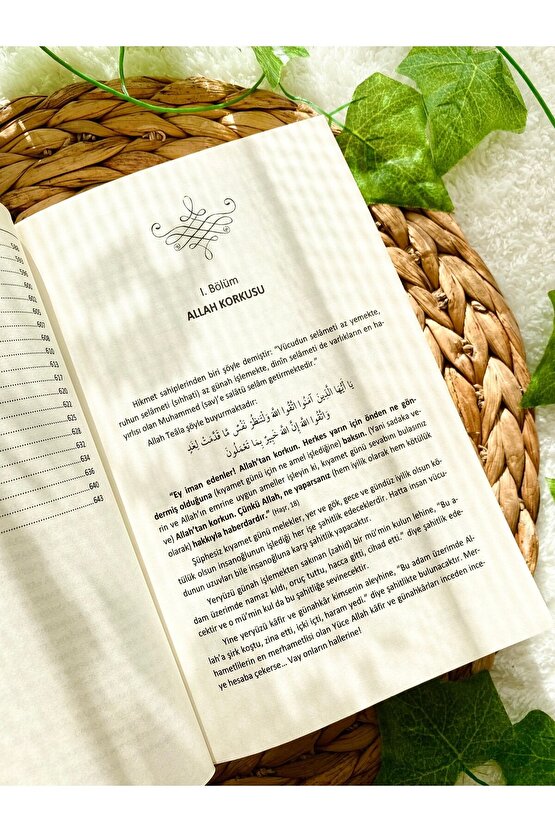 588
590
593
595
600
602
604
607
611
613
616
632
636
640
643
I. Bölüm
ALLAH KORKUSU
Hikmet sahiplerinden biri şöyle demiştir: "Vücudun selâmeti az yemekte,
ruhun selâmeti (sıhhati) az günah işlemekte, dinîn selâmeti de varlıkların en ha-
yırlısı olan Muhammed (sav)'e salâtü selâm getirmektedir."
Allah Teâla şöyle buyurmaktadır:
يَا أَيُّهَا الَّذِينَ آمَنُوا اتَّقُوا اللَّهَ وَلْتَنظُرْ نَفْسٌ مَّا قَدَّمَتْ لِغَدٍ
وَاتَّقُوا اللَّهَ إِنَّ اللَّهَ خَبِيرٌ بِمَا تَعْمَلُونَ
"Ey iman edenler! Allah'tan korkun. Herkes yarın için önden ne gön-
dermiş olduğuna (kıyamet günü için ne amel işlediğine) baksın. (Yani sadaka ve-
rin ve Allah'ın emrine uygun ameller işleyin ki, kıyamet günü sevabını bulasınız
ve) Allah'tan korkun. Çünkü Allah, ne yaparsanız (hem iyilik olarak hem kötülük
olarak) hakkıyla haberdardır." (Haşr, 18)
Şüphesiz kıyamet günü melekler, yer ve gök, gece ve gündüz iyilik olsun kö-
tülük olsun insanoğlunun işlediği her işe şahitlik edeceklerdir. Hatta insan vücu-
dunun uzuvları bile insanoğluna karşı şahitlik yapacaktır.
Yeryüzü günah işlemekten sakınan (zahid) bir mü'min kulun lehine, "Bu a-
dam üzerimde namaz kıldı, oruç tuttu, hacca gitti, cihad etti." diye şahitlik ede-
cektir ve o mü'min kul da bu şahitliğe sevinecektir.
Yine yeryüzü kâfir ve günahkâr kimsenin aleyhine, "Bu adam üzerimde Al-
lah'a şirk koştu, zina etti, içki içti, haram yedi." diye şahitlikte bulunacaktır. Mer-
hametlilerin en merhametlisi olan Yüce Allah kâfir ve günahkârları inceden ince-
ye hesaba çekerse... Vay onların hallerine!